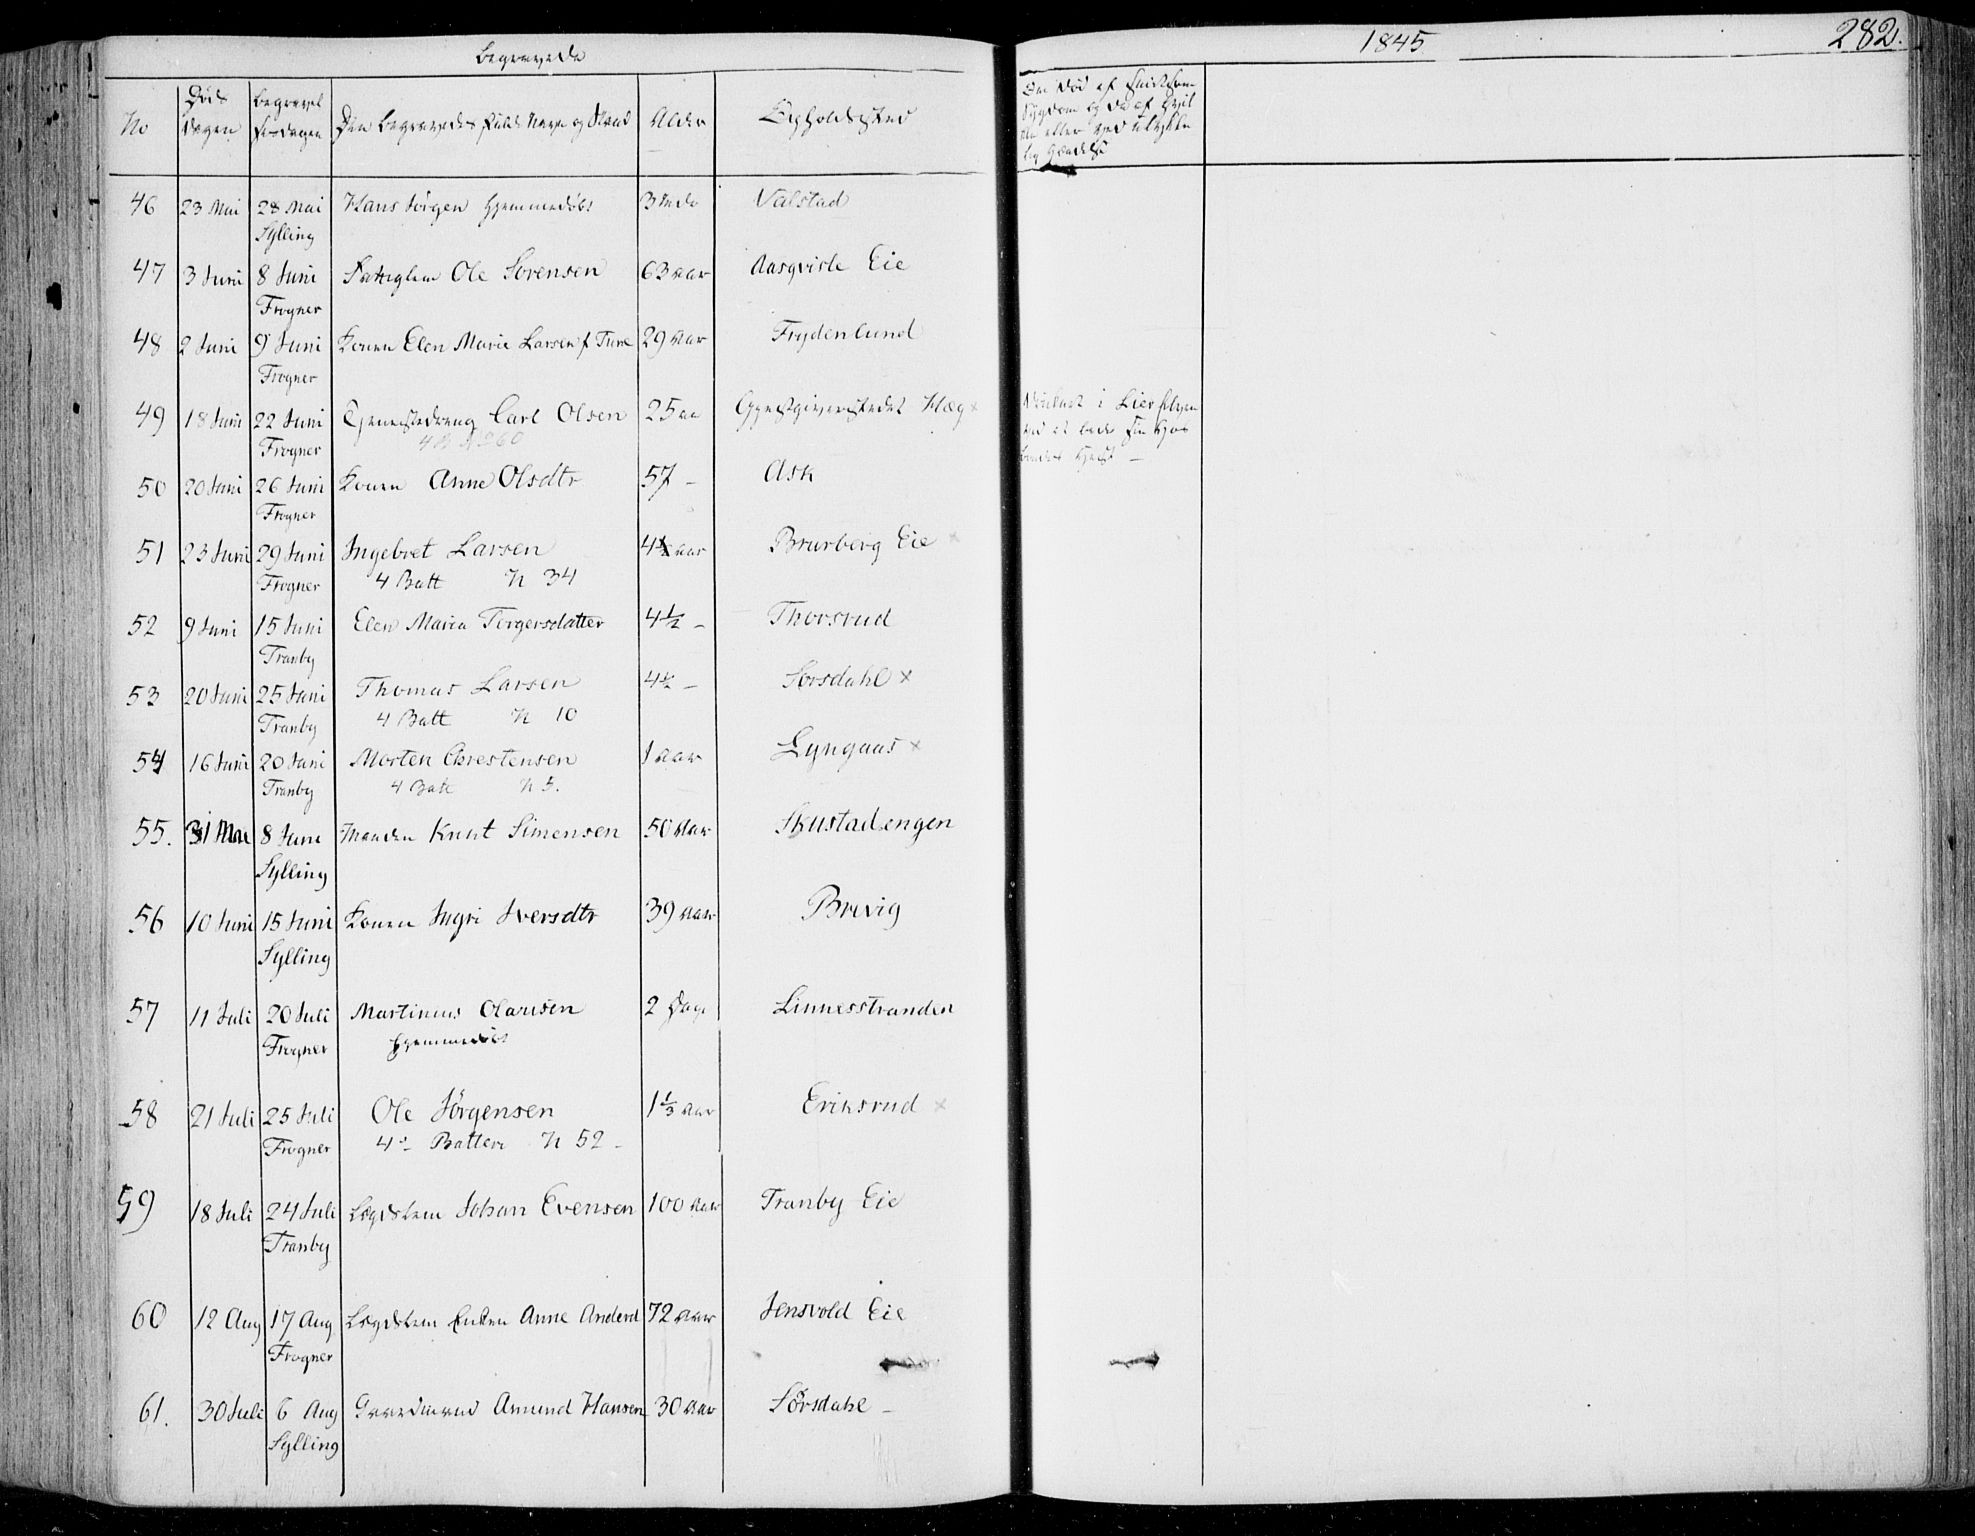 Begravede
1845
282.
No
Døds dagen
Begravelses dagen
Den Begravedes fulde Navn og Stand
Alder
Opholdssted
Om død af smitsom
Sygdom og da af hvil
ken eller ved ulykke
lig Hændelse
46 23 Mai 28 Mai Hans Jørgen hjemmedøbt 3 Valstad
Sylling
47 3 Juni 8 Juni Fattiglem Ole Sorensen 63 aar Aasqvisle Eie
Frogner
48 2 Juni 9 Juni Konen Elen Marie Larsen f Tune 29 aar Frydenlund
Frogner
49 18 Juni 22 Juni Tjenestedreng Carl Olsen 25 aa Gjestgiverstedet Hæg x i Lier
Frogner 4 B 260 ved at
50 20 Juni 26 Juni Konen Anne Olsdtr 57 - Ask
Frogner
51 23 Juni 29 Juni Ingebret Larsen 4½ aar Brurberg Eie x
Frogner 4 Batt N 34
52 9 Juni 15 Juni Elen Maria Torgersdatter 4½ - Thorsrud
Tranby
53 20 Juni 25 Juni Thomas Larsen 4½ - Sørsdahl x
Tranby 4 Batt N 10
54 16 Juni 20 Juni Morten Chrestensen 1 aar Lyngaas x
Tranby 4 Batt N 5.
55. 31 Mai 8 Juni Manden Knut Simensen 50 aar Skustadengen
Sylling
56 10 Juni 15 Juni Konen Ingri Iversdtr 39 aar Brevig
Sylling
57 11 Juli 20 Juli Martinius Olausen 2 Dage Linnesstranden
Frogner hjemmedøbt
58 21 Juli 25 Juli Ole Jörgensen 1⅓ aar Eriksrud x
Frogner 4de Batteri N 52 -
59 18 Juli 24 Juli Lægdslem Johan Evensen 100 aar Tranby Eie
Tranby
60 12 Aug 17 Aug Lægdslem Enken Anne Andersd 72 aar Jensvold Eie
Frogner
61. 30 Juli 6 Aug Gaardmand Amund Hansen 30 aar Sørsdahl -
Sylling